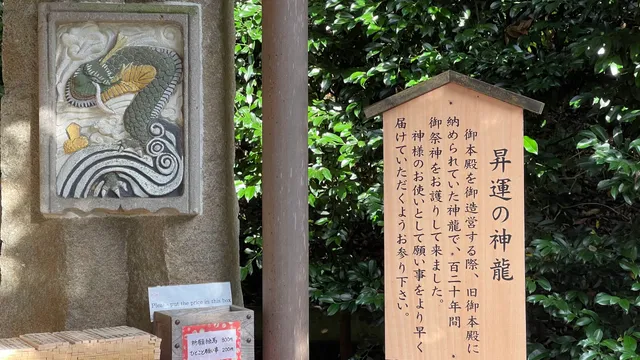 昇運の神龍
御本殿を御造営する際、旧御本殿に
納められていた神龍で、百二十年間
御祭神をお護りして来ました。
神様のお使いとして願い事をより早く
届けていただくようお参り下さい。
put the price in this